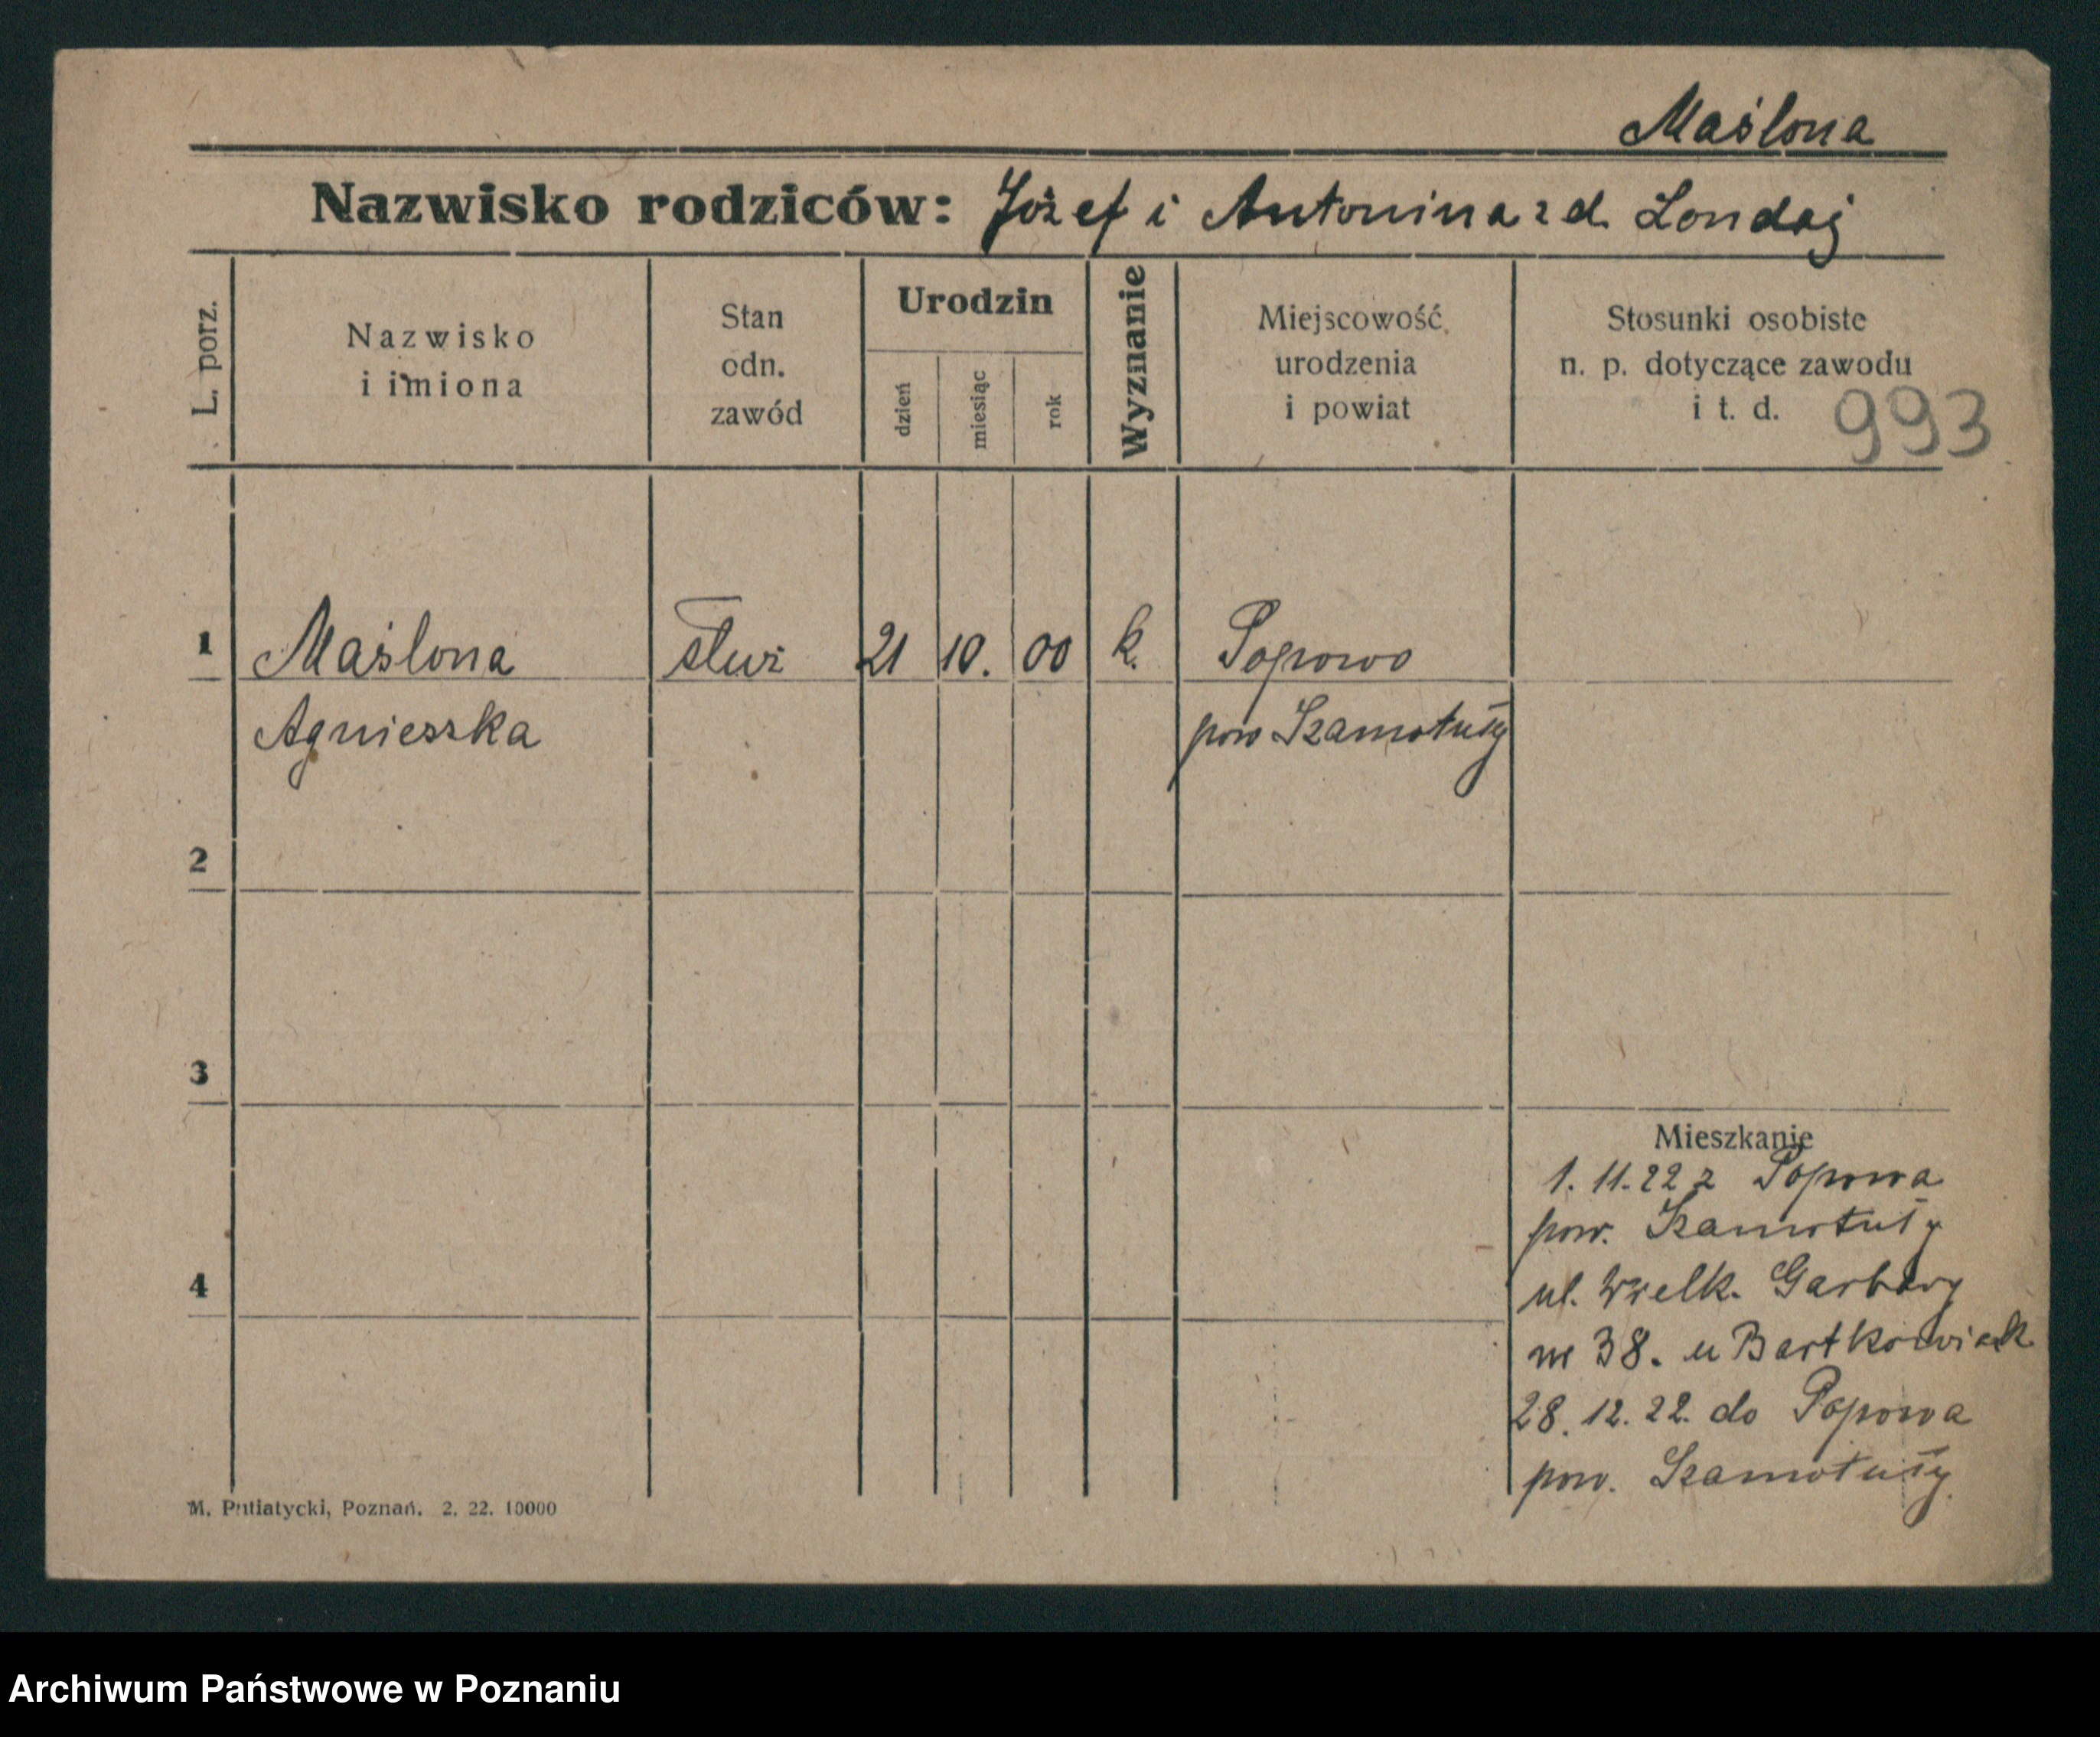 Maślona
Nazwisko rodziców: Józef i Antonina z d. Londaj
L. porz.
Nazwisko
i imiona
Stan
odn.
zawód
Urodzin
dzień
miesiąc
rok
Wyznanie
Miejscowość
urodzenia
i powiat
Stosunki osobiste
n. p. dotyczące zawodu
i t. d.
993
1 Maślona służ 21 10. 00 k. Popowo
Agnieszka pow Szamotuły
2
3
4
Mieszkanie
1. 11. 22 z Popowa
pow. Szamotuły
ul. Wielk. Garbary
nr 38. u Bartkowiak
28. 12. 22. do Popowa
pow. Szamotuły
M. Putiatycki, Poznań. 2. 22. 10000
Archiwum Państwowe w Poznaniu